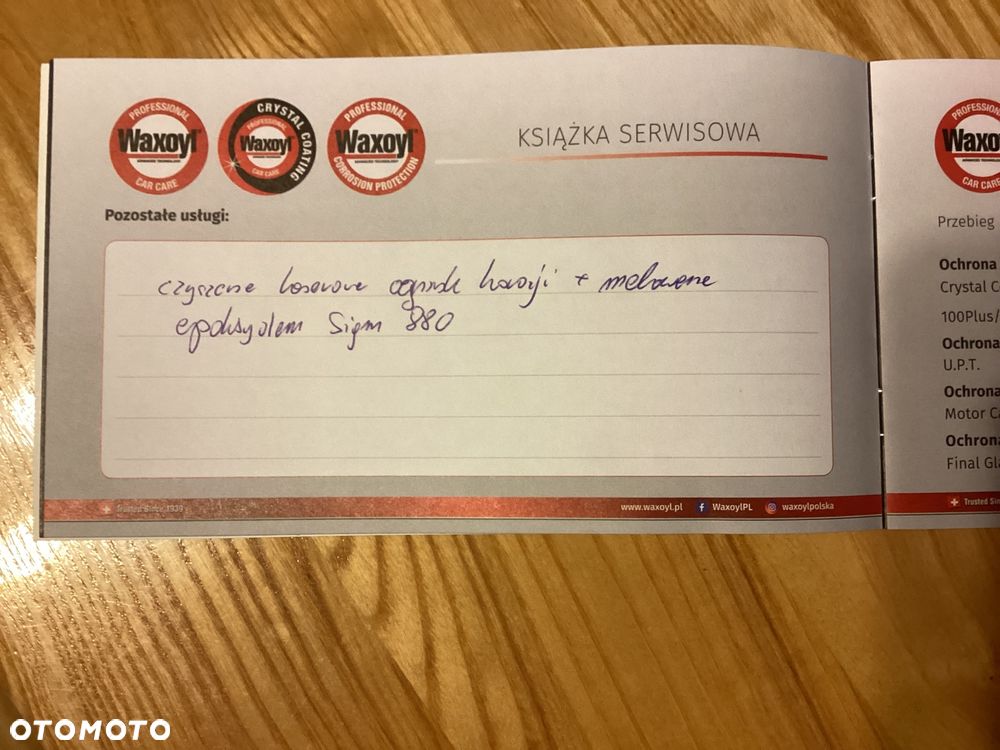 PROFESSIONAL
Waxoyl®
ADVANCED TECHNOLOGY
CAR CARE
CRYSTAL COATING
PROFESSIONAL
Waxoyl
CAR CARE
PROFESSIONAL
Waxoyl®
ADVANCED TECHNOLOGY
CORROSION PROTECTION
KSIĄŻKA SERWISOWA
Pozostałe usługi:
czyszczenie laserowe + malowanie
Sigm 880
Trusted Since 1939
www.waxoyl.pl WaxoylPL waxoylpolska
PROFESSIONAL
Waxo
CAR CARE
Przebieg
Ochrona
Crystal C
100Plus/
Ochrona
U.P.T.
Ochrona
Motor Ca
Ochrona
Final Gla
Trusted Sin
OTOMOTO